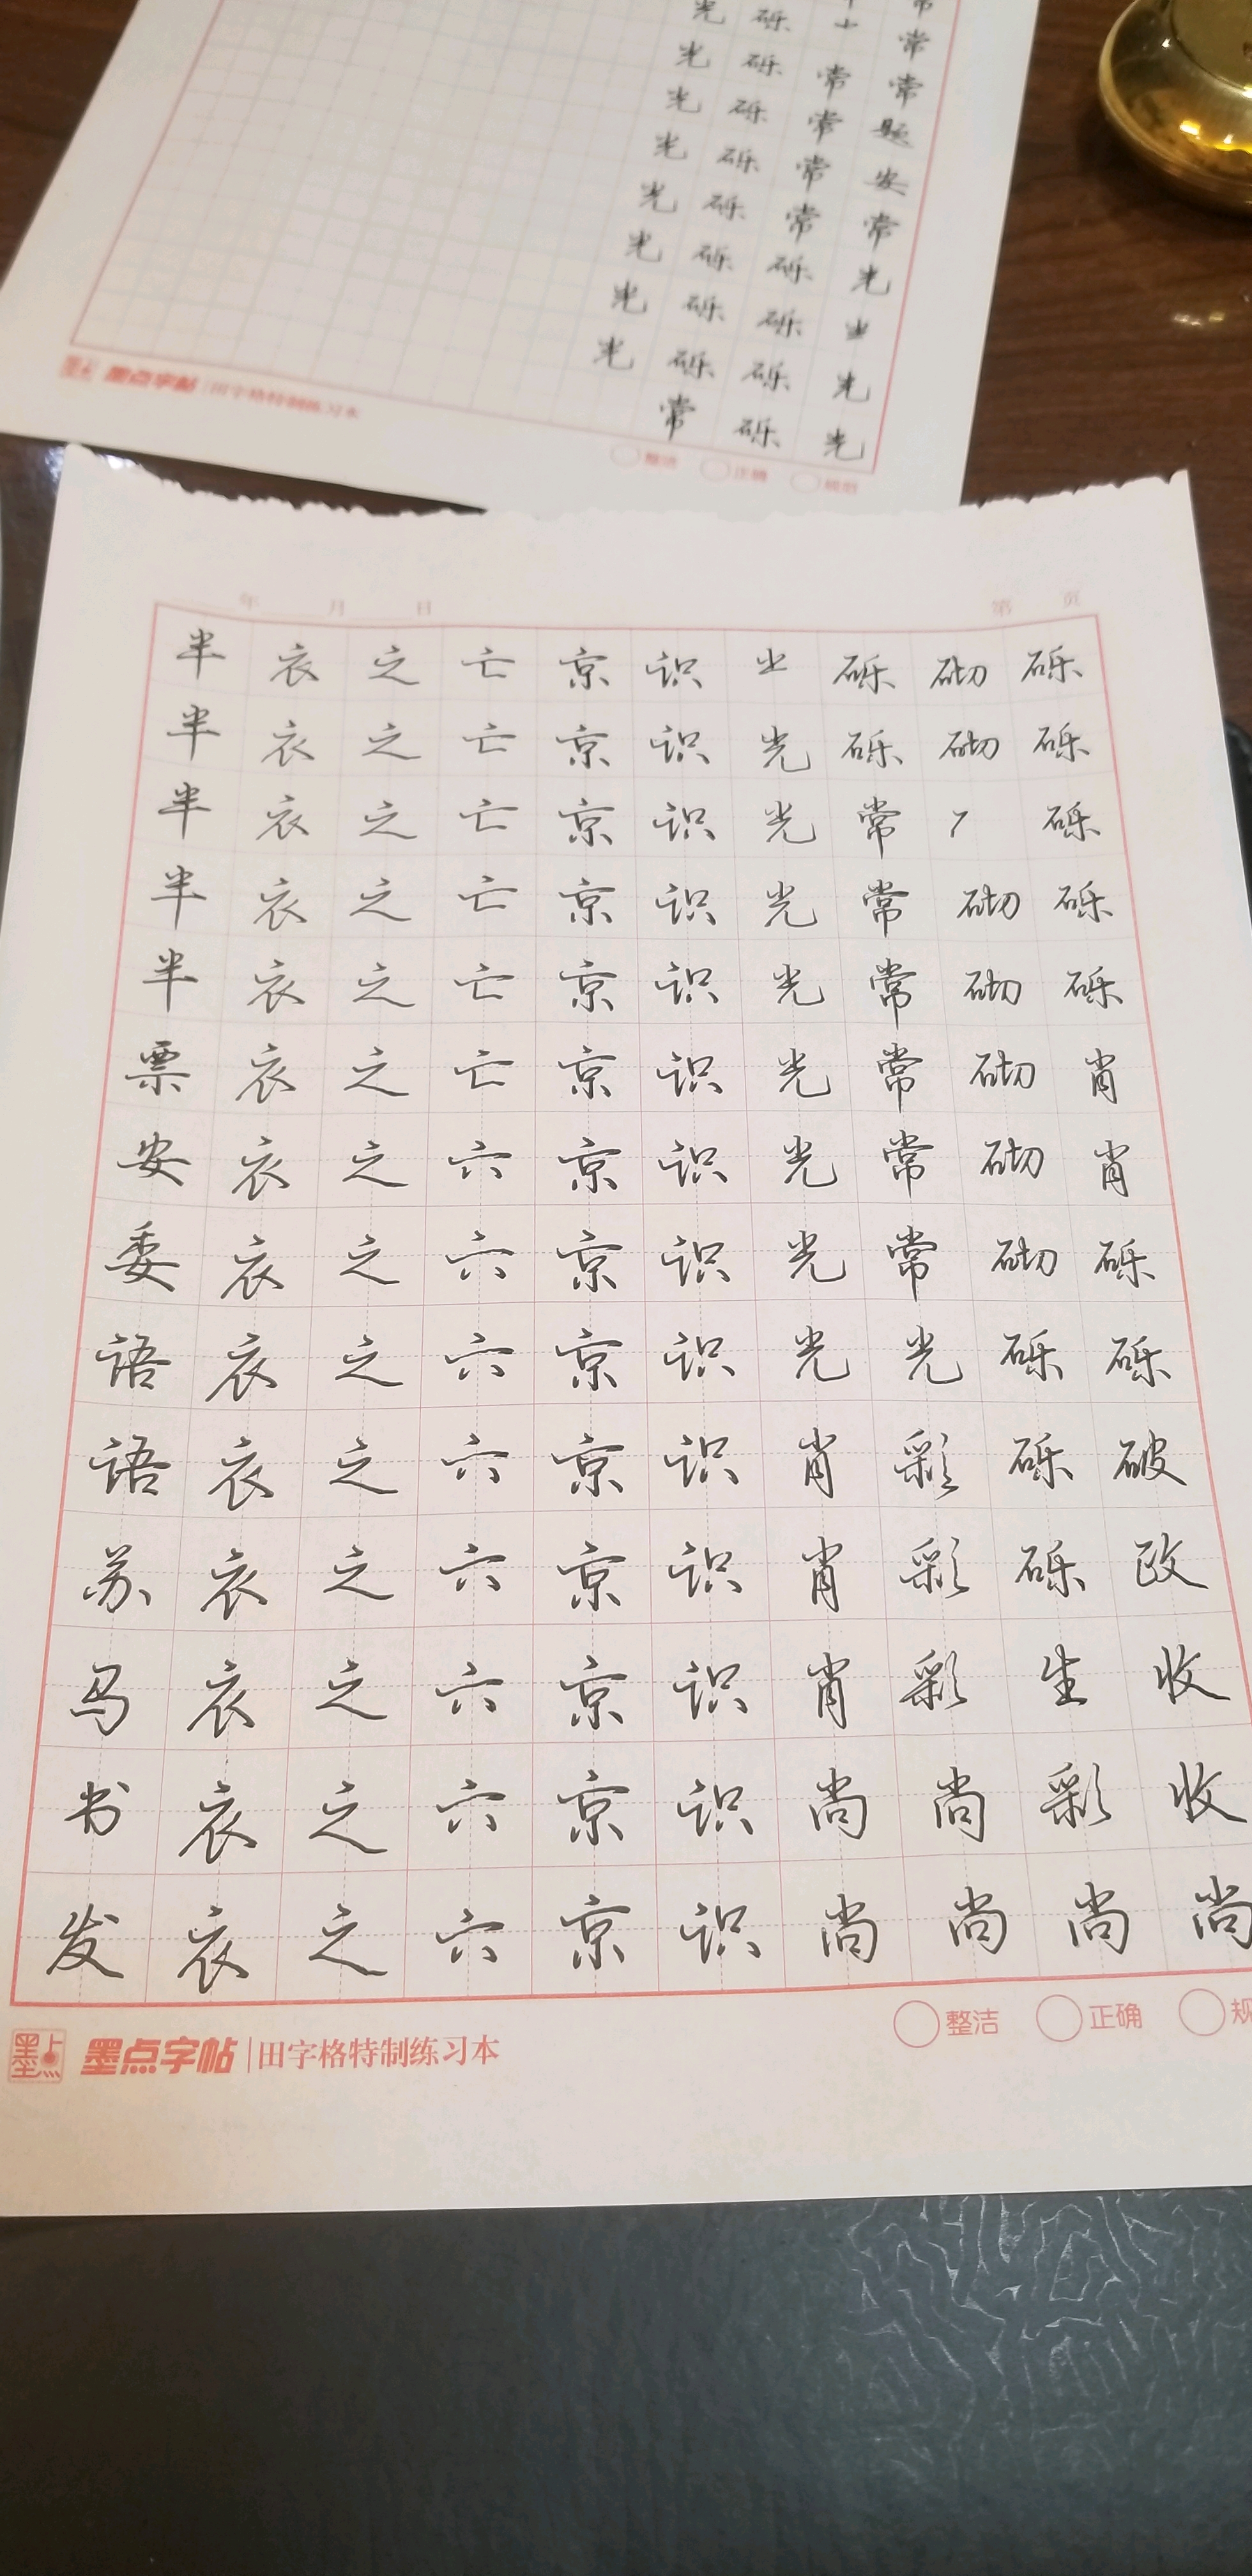 常
光 砾 常
光 砾 常 常
光 砾 常 题
光 砾 常 安
光 砾 常 常
光 砾 砾 光
光 砾 砾
光 砾 砾 光
常 砾 光
墨点字帖 田字格特制练习本
整洁 正确 规范
年 月 日 第 页
半 衣 之 亡 京 识 砾 砌 砾
半 衣 之 亡 京 识 光 砾 砌 砾
半 衣 之 亡 京 识 光 常 砾
半 衣 之 亡 京 识 光 常 砌 砾
半 衣 之 亡 京 识 光 常 砌 砾
票 衣 之 亡 京 识 光 常 砌 肖
安 衣 之 六 京 识 光 常 砌 肖
委 衣 之 六 京 识 光 常 砌 砾
语 衣 之 六 京 识 光 光 砾 砾
语 衣 之 六 京 识 肖 彩 砾 破
苏 衣 之 六 京 识 肖 彩 砾 政
马 衣 之 六 京 识 肖 彩 生 收
书 衣 之 六 京 识 尚 尚 彩 收
发 衣 之 六 京 识 尚 尚 尚 尚
墨点 墨点字帖 田字格特制练习本 整洁 正确 规